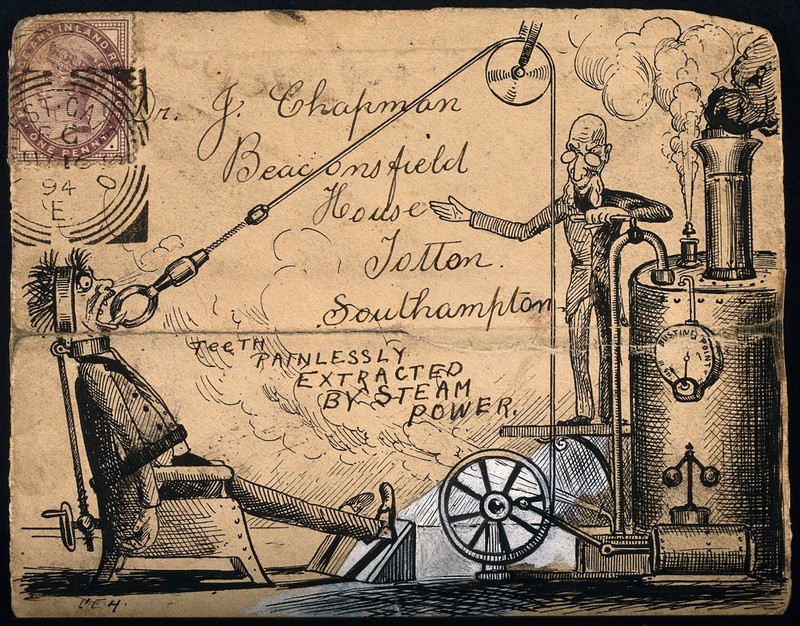 Dr. J. Chapman
Beaconsfield
House
Totton.
Southampton
TEETH
PAINLESSLY
EXTRACTED
BY STEAM
POWER.
AND INLAND RE
ONE PENNY
ST. CA
94
E
BUSTING POINT